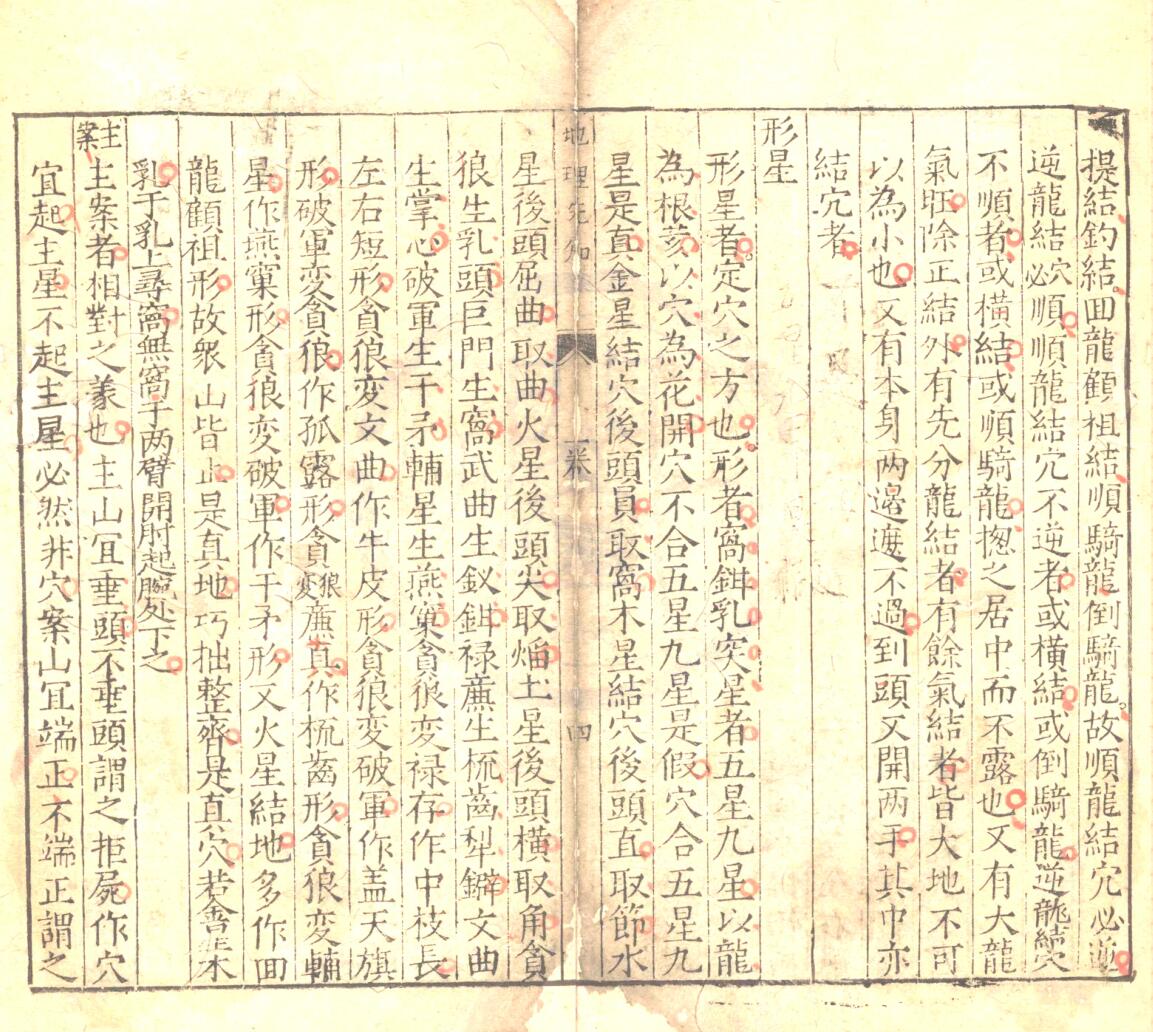 提結鈎結囬龍顧祖結順騎龍倒騎龍故順龍結穴必逆
逆龍結必穴順順龍結穴不逆者或橫結或倒騎龍逆龍結穴
不順者或橫結或順騎龍揔之居中而不露也又有大龍
氣旺除正結外有先分龍結者有餘氣結者皆大地不可
以為小也又有本身两邉遮不過到頭又開两手其中亦
結穴者
形星
形星者定穴之方也形者窩鉗乳突星者五星九星以龍
為根荄以穴為花開穴不合五星九星是假穴合五星九
星是真金星結穴後頭員取窩木星結穴後頭直取節水
地理先知
一卷
四
星後頭屈曲取曲火星後頭尖取焰土星後頭橫取角貪
狼生乳頭巨門生窩武曲生釵鉗禄廉生梳齒犁鐴文曲
生掌心破軍生干矛輔星生燕窠貪狼変禄存作中枝長
左右短形貪狼変文曲作牛皮形貪狼変破軍作盖天旗
形破軍変貪狼作孤露形貪狼変廉真作梳齒形貪狼変輔
星作燕窠形貪狼変破軍作干矛形又火星結地多作囬
龍顧祖形故衆山皆止是真地巧拙整齊是直穴若會
乳于乳上尋窩無窩于两臂開肘起腕处下之
主案
主案者相對之義也主山冝垂頭不垂頭謂之拒屍作穴
宜起主星不起主星必然非穴案山冝端正不端正謂之